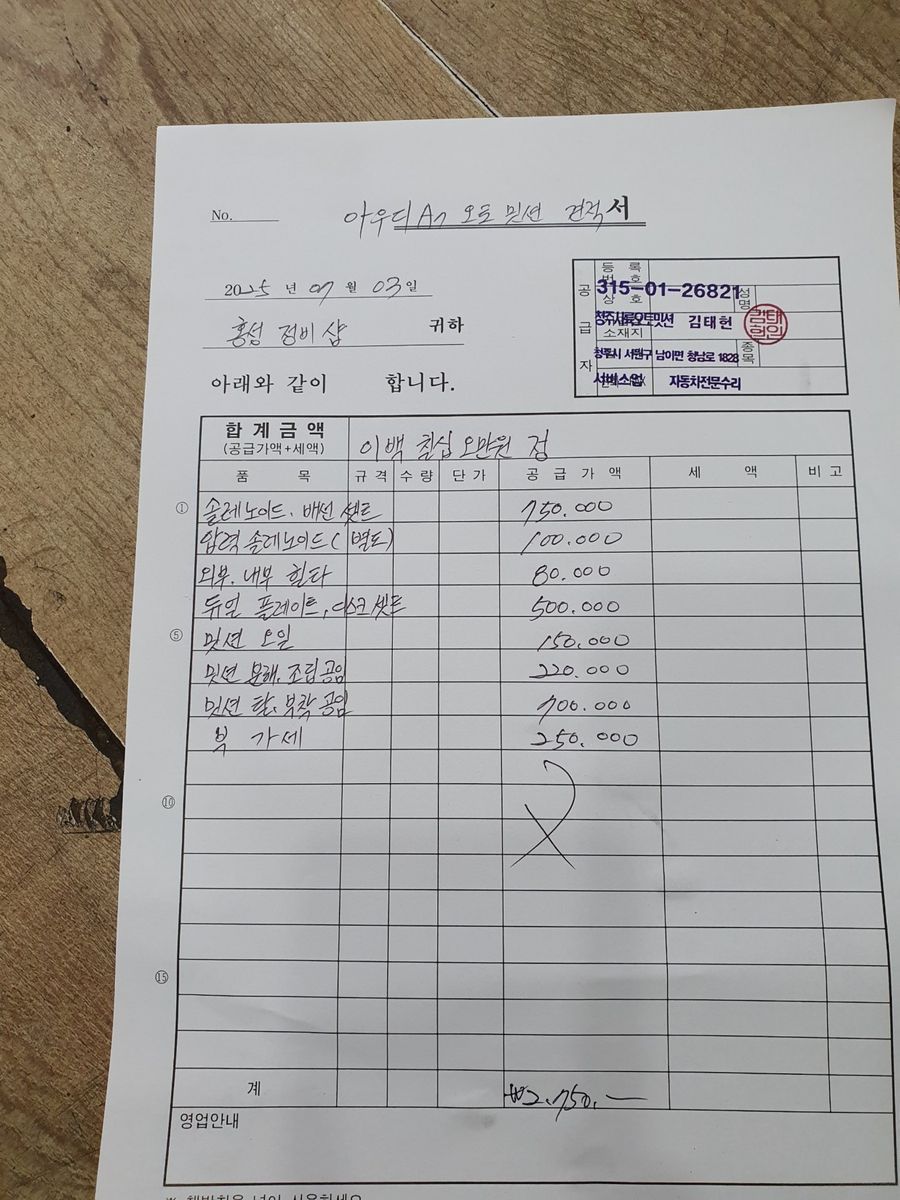 No.
아우디 A7 오토 밋션 견적서
2025년 07월 03일
홍성 정비샵 귀하
아래와 같이 합니다.
공급자
등록번호 315-01-26821
상호 청주사륜오토밋션 성명 김태헌
소재지 청주시 서원구 남이면 청남로 1828
서비스업 종목 자동차전문수리
합계금액 이백 칠십 오만원 정
(공급가액+세액)
품목 규격 수량 단가 공급가액 세액 비고
① 솔레노이드. 배선 셋트 750.000
압력 솔레노이드( 별도) 100.000
외부. 내부 휠타 80.000
듀얼 플레이트, 디스크 셋트 500.000
⑤ 밋션 오일 150.000
밋션 분해. 조립 공임 220.000
밋션 탈. 부착 공임 700.000
부 가세 250.000
⑩
⑮
계 ₩2.750.—
영업안내